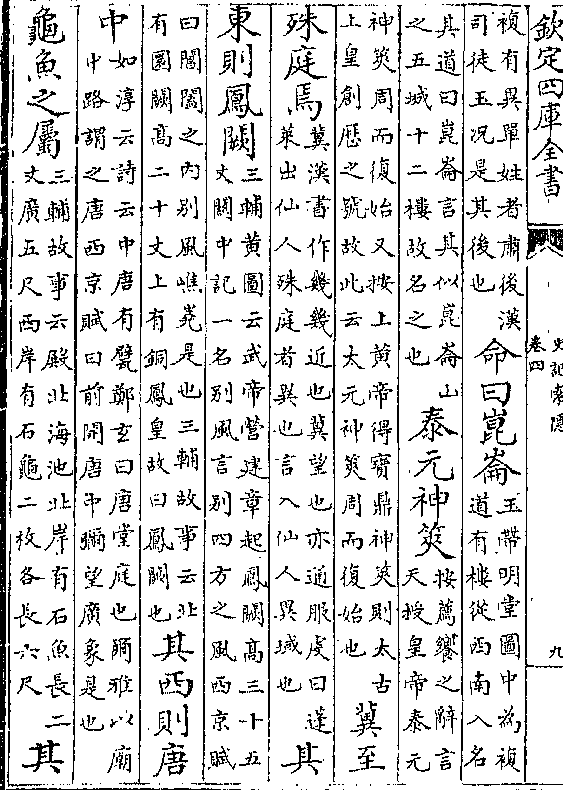 欽定四庫全書
史記索隱
卷四
九
複有異單姓者肅後漢
司徒玉况是其後也
命曰崑崙
玉帶明堂圖中為複
道有樓從西南入名
其道曰崑崙言其似崑崙山
之五城十二樓故名之也
泰元神筴
按薦饗之辭言
天授皇帝泰元
神筴周而復始又按上黄帝得寶鼎神筴則太古
上皇創歷之號故此云太元神筴周而復始也
冀至
殊庭焉
冀漢書作幾幾近也冀望也亦通服虔曰蓬
萊出仙人殊庭者異也言入仙人異域也
其
東則鳳闕
三輔黄圖云武帝營建章起鳳闕高三十五
丈關中記一名别風言别四方之風西京賦
曰閶闔之内别風嶕嶢是也三輔故事云北
有圜闕高二十丈上有銅鳳皇故曰鳳闕也
其西則唐
中
如淳云詩云中唐有甓鄭玄曰唐堂庭也爾雅以廟
中路謂之唐西京賦曰前開唐中彌望廣象是也
龜魚之屬
三輔故事云殿北海池北岸有石魚長二
丈廣五尺西岸有石龜二枚各長六尺
其